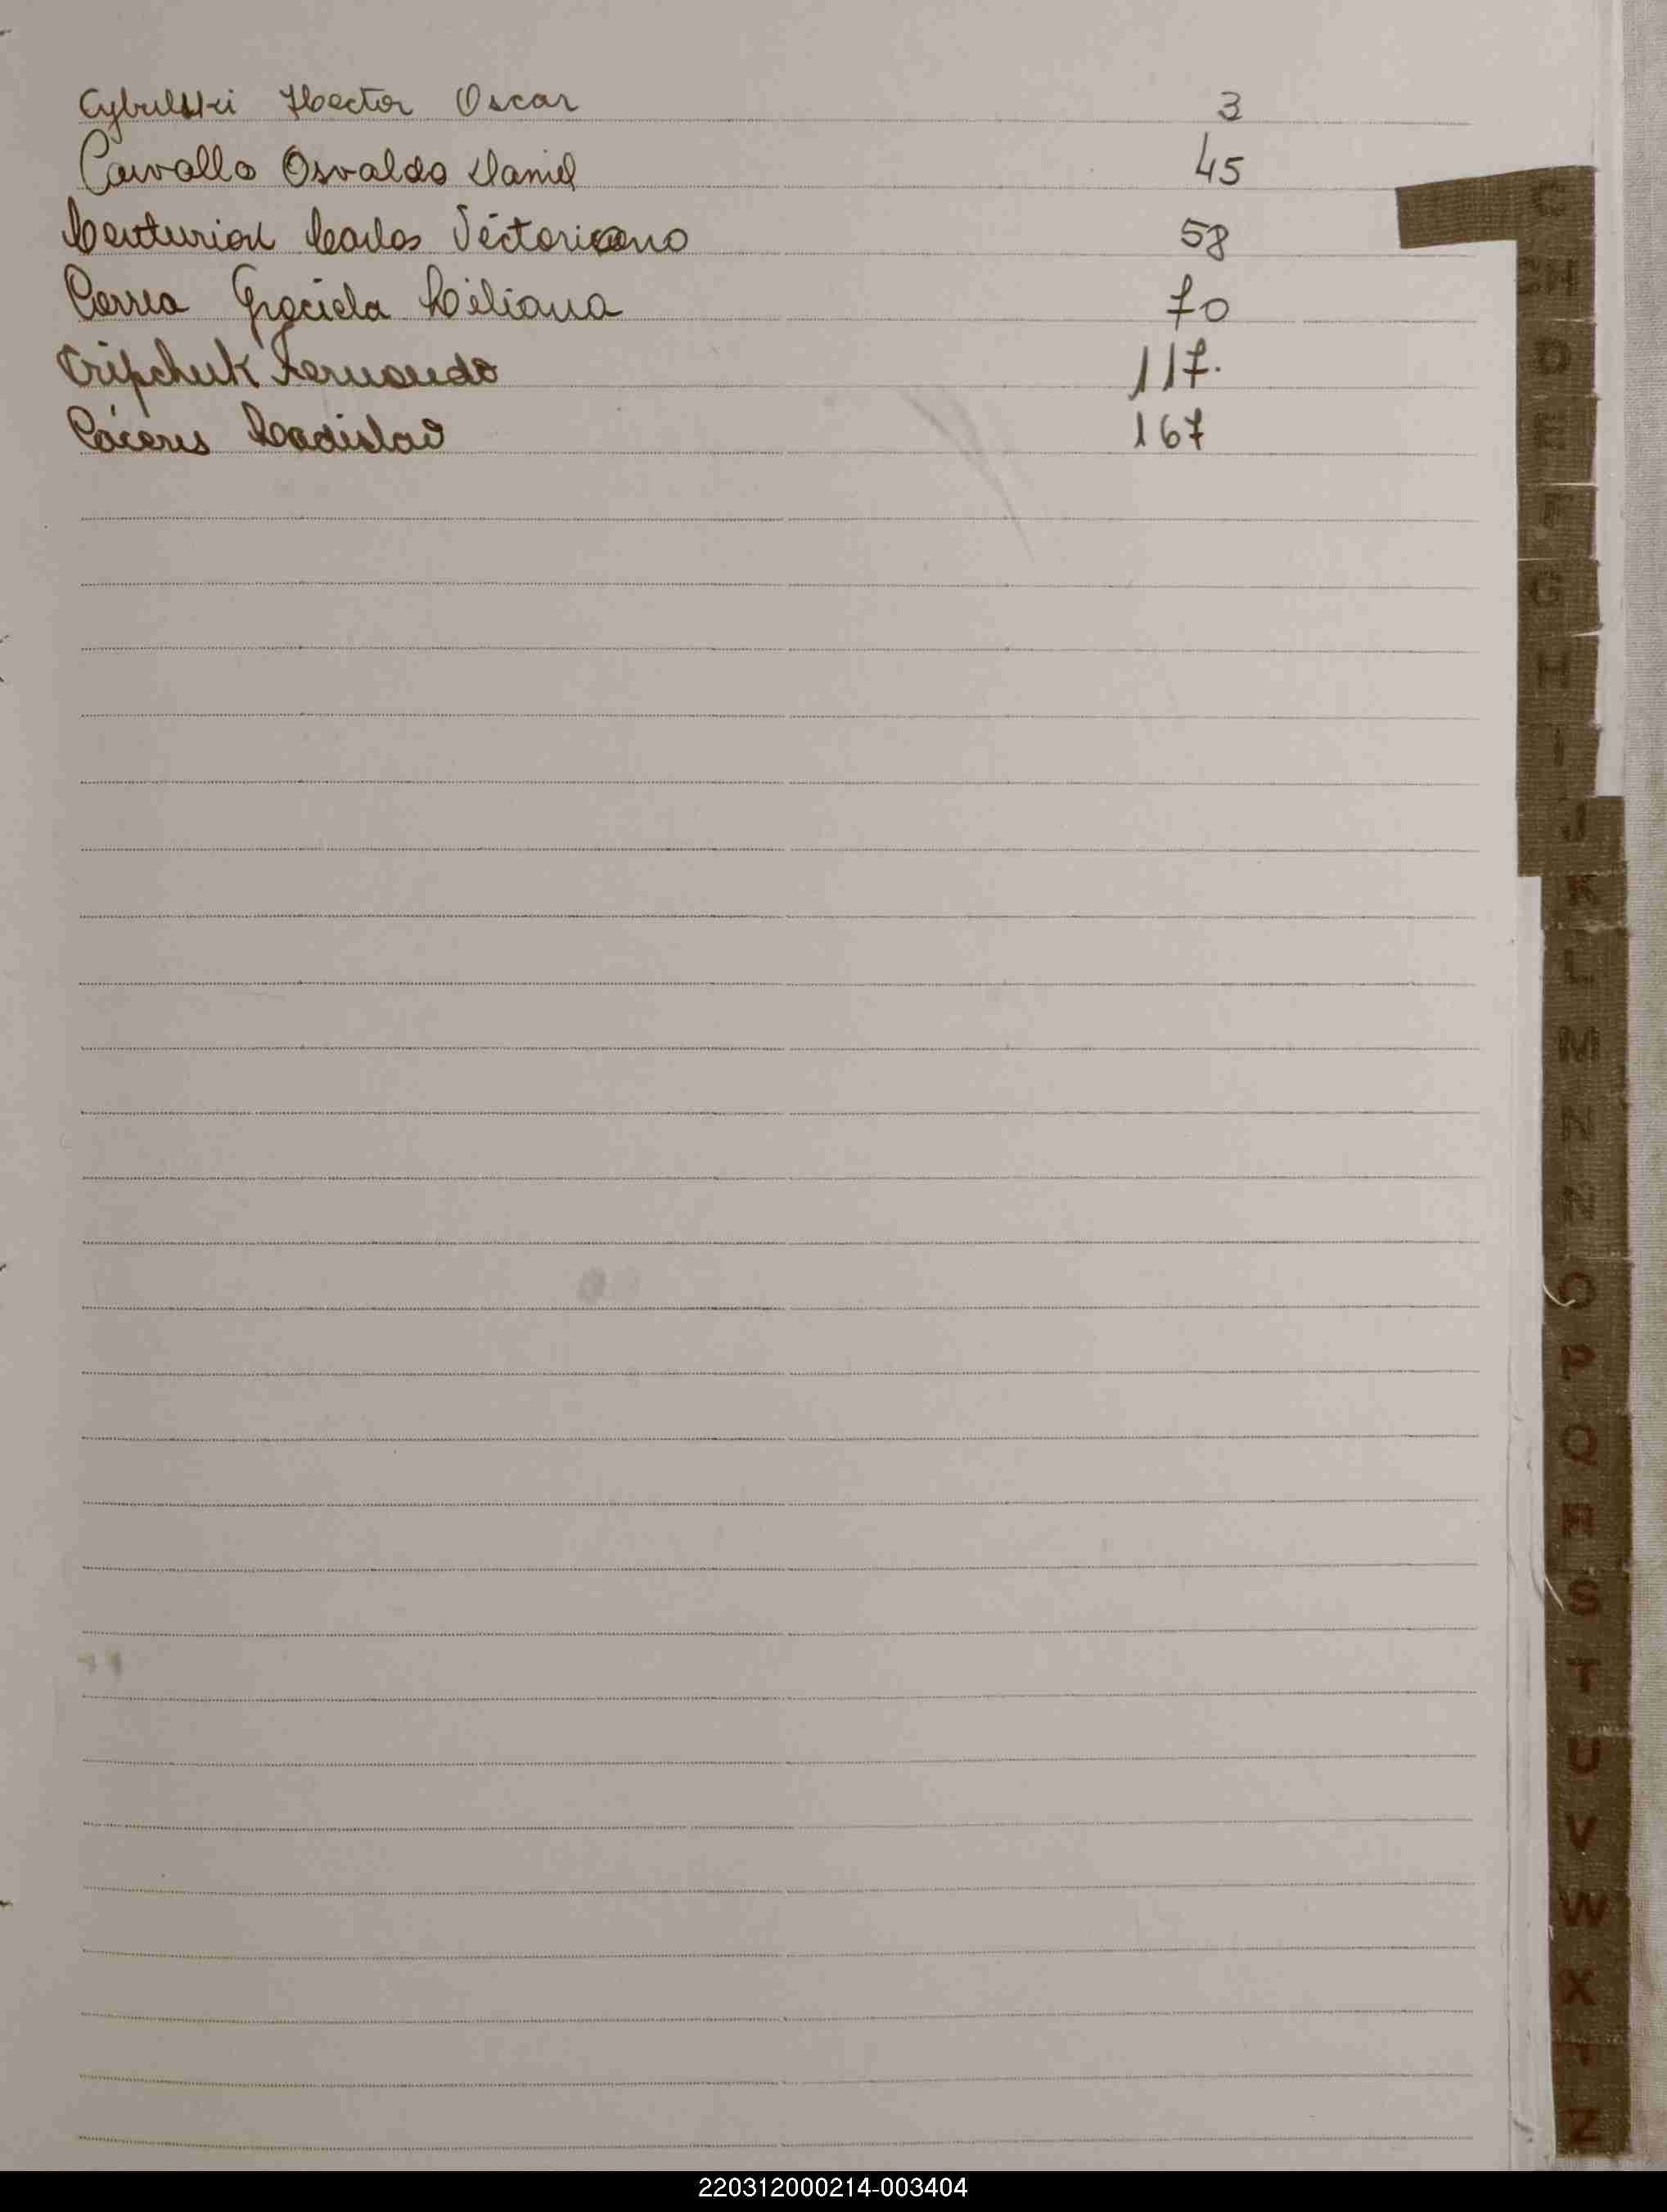 Cybulski Hector Oscar 3
Carvallo Osvaldo Daniel 45
Centurion Carlos Victoriano 58
Correa Graciela Liliana 70
Cripchuk Fernando 117.
Cáceres Ladislao 167
C
CH
D
E
F
G
H
I
J
K
L
M
N
Ñ
O
P
Q
R
S
T
U
V
W
X
Y
Z
220312000214-003404